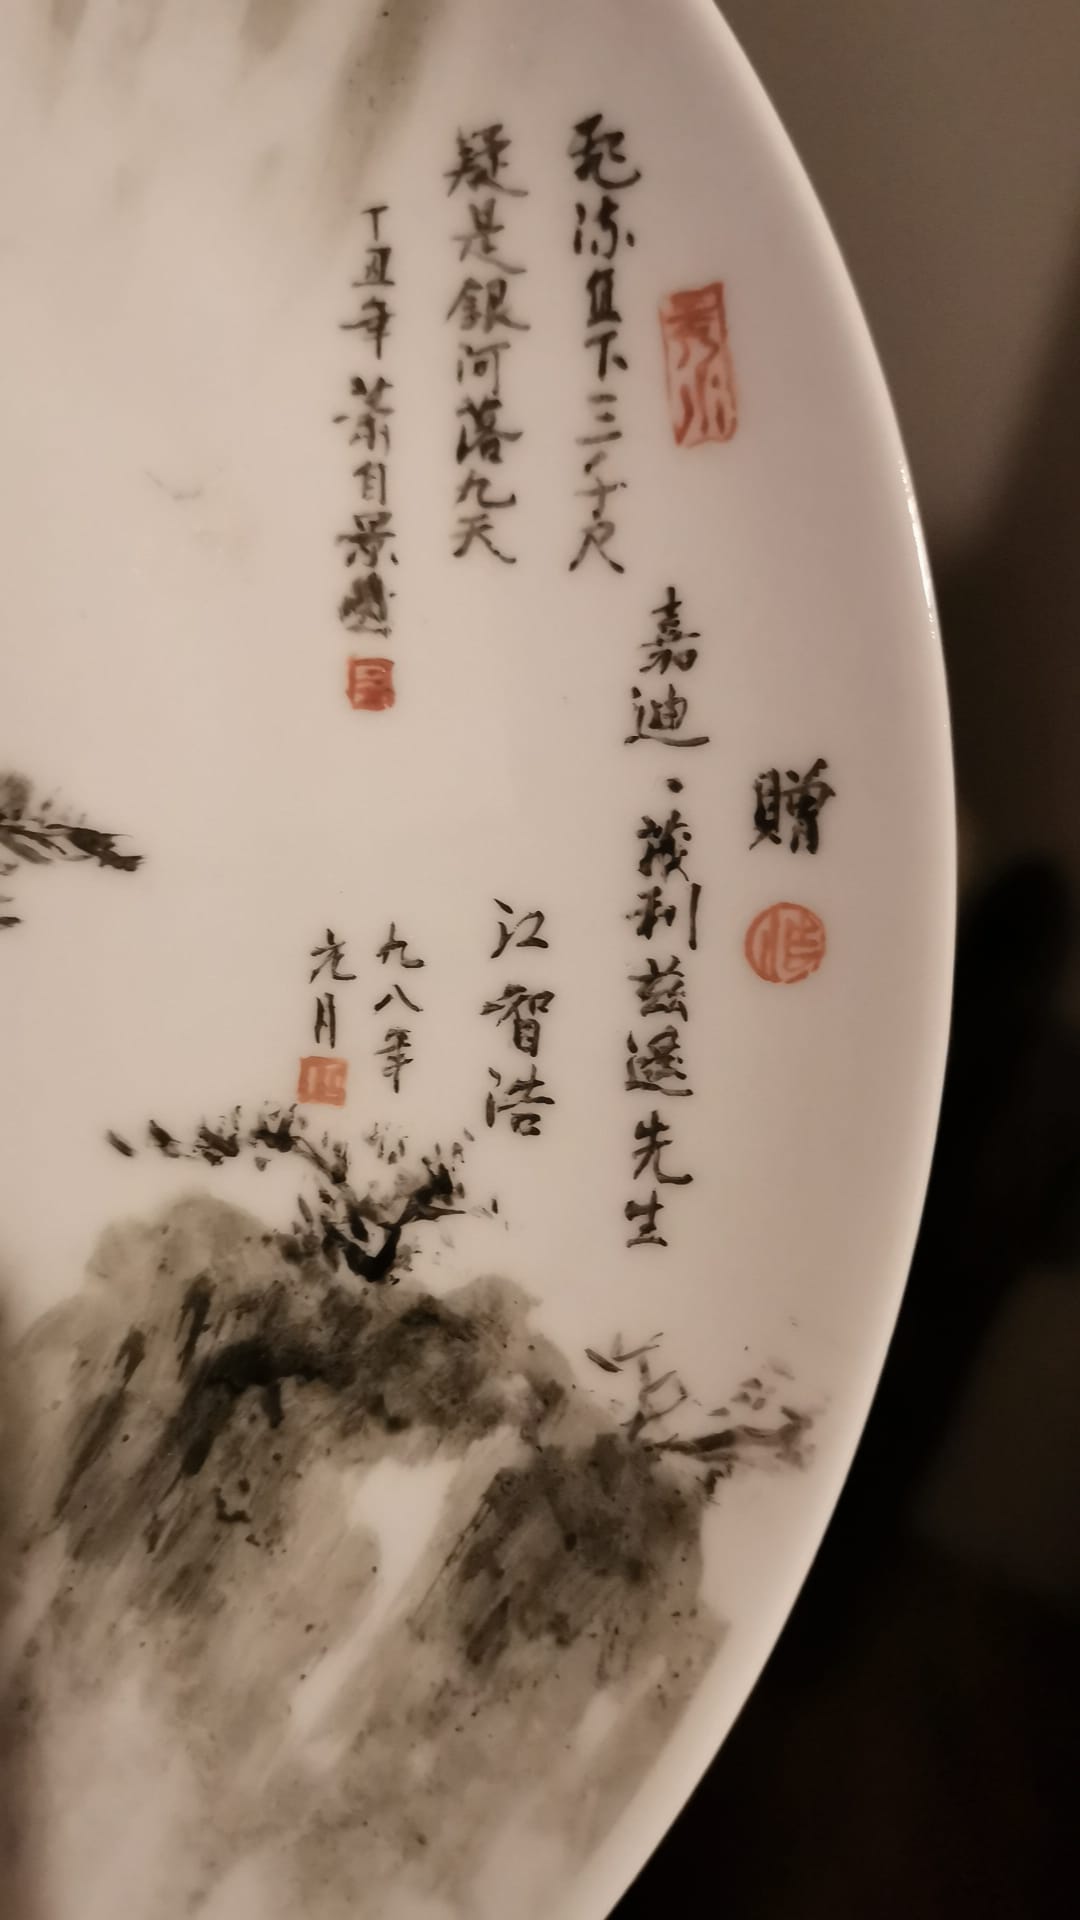 飛流直下三千尺
疑是銀河落九天
丁丑年蕭自景
贈
嘉迪·茂利兹遜先生
江智浩
九八年
元月